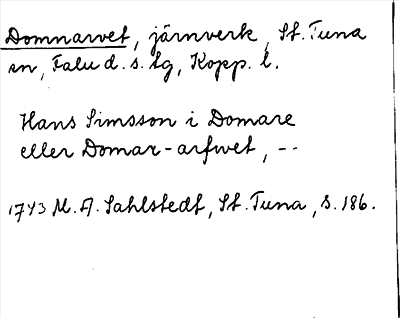 Domnarvet, järnverk, St. Tuna
sn, Falu d. s. lg, Kopp. l.
Hans Simsson i Domare
eller Domar-arfwet, --
1743 M. A. Sahlstedt, St. Tuna, s. 186.